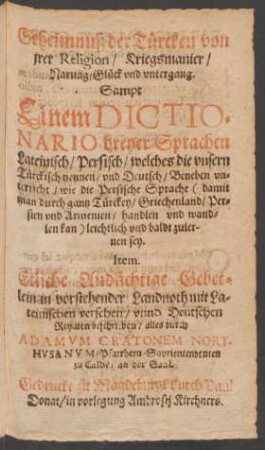 Geheimnuß der Türcken von
jrer Religion / Kriegsmanier /
Narung / Glück vnd vntergang.
Sampt
Einem DICTIO-
NARIO dreyer Sprachen
Lateinisch / Persisch / welches die vnsern
Türckisch nennen / vnd Deutsch / Beneben vn-
terricht / wie die Persische Sprache (damit
man durch gantz Türckey / Griechenland / Per-
sien vnd Armenien / handlen vnd wand-
len kan) leichtlich vnd baldt zuler-
nen sey.
Item.
Etliche Andächtige Gebet-
lein in vorstehender Landnoth mit La-
teinischen versehen / vnnd Deutschen
Reymen beschrieben / alles durch
ADAMVM CRATONEM NORT-
HVSANVM / Pfarrhern / Superientendenten
zu Calbe / an der Saal.
Gedruckt zu Magdeburgk durch Paul
Donat / in vorlegung Ambrosij Kirchners.